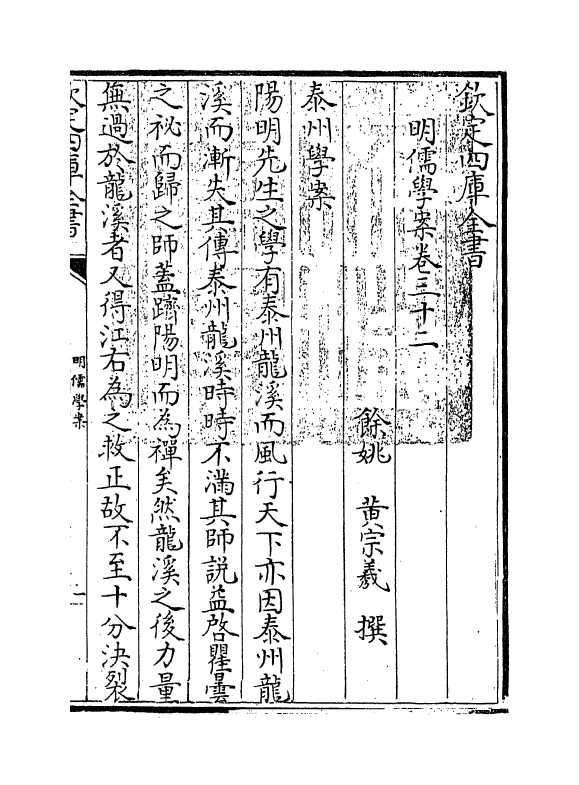 欽定四庫全書
明儒學案卷三十二
餘姚 黄宗羲 撰
泰州學案
陽明先生之學有泰州龍溪而風行天下亦因泰州龍
溪而漸失其傳泰州龍溪時時不滿其師說益啓瞿曇
之祕而歸之師葢躋陽明而為禪矣然龍溪之後力量
無過於龍溪者又得江右為之救正故不至十分決裂
欽定四庫全書
明儒學案